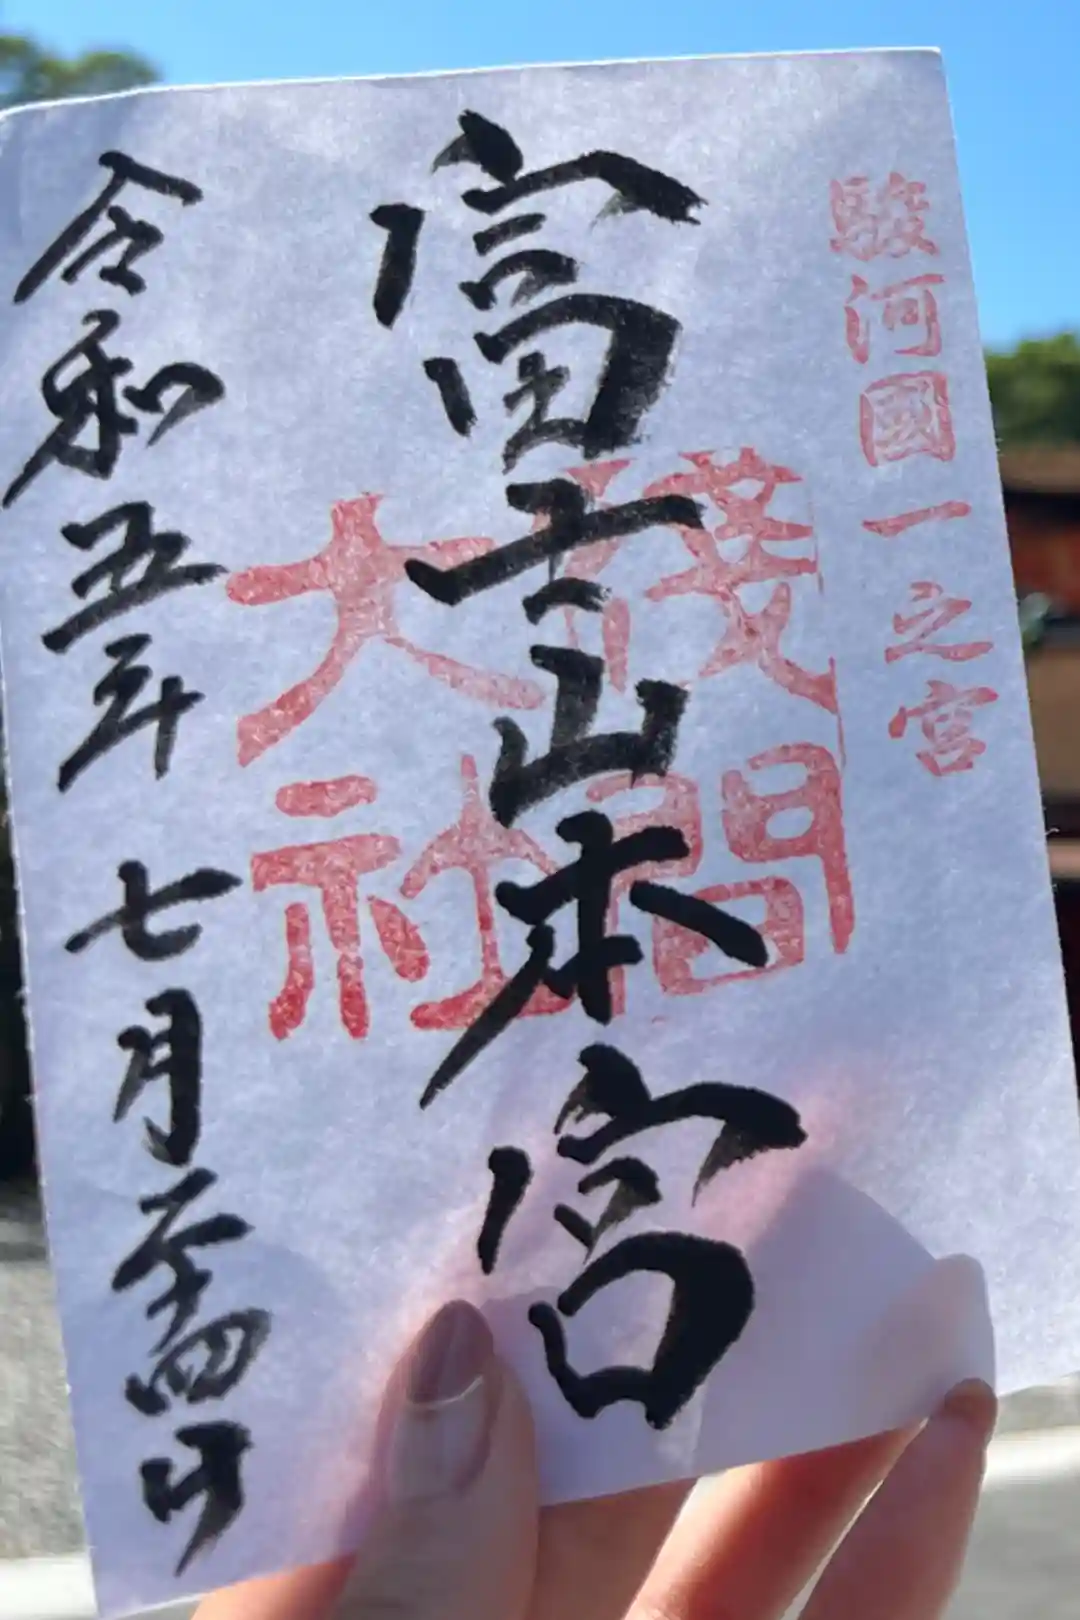 駿河國一之宮
富士山本宮
淺間
大社
令和五年 七月二十四日